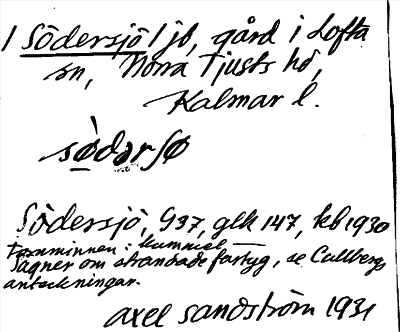 1 Södersjö 1 jb, gård i Lofta
sn, Norra Tjusts hd,
Kalmar l.
sø̀dərʃø
Södersjö, G37, gek 147, kb 1930
Fornminnen: kummel
Sagner om strandade fartyg, se Cullbergs
anteckningar.
Axel Sandström 1931